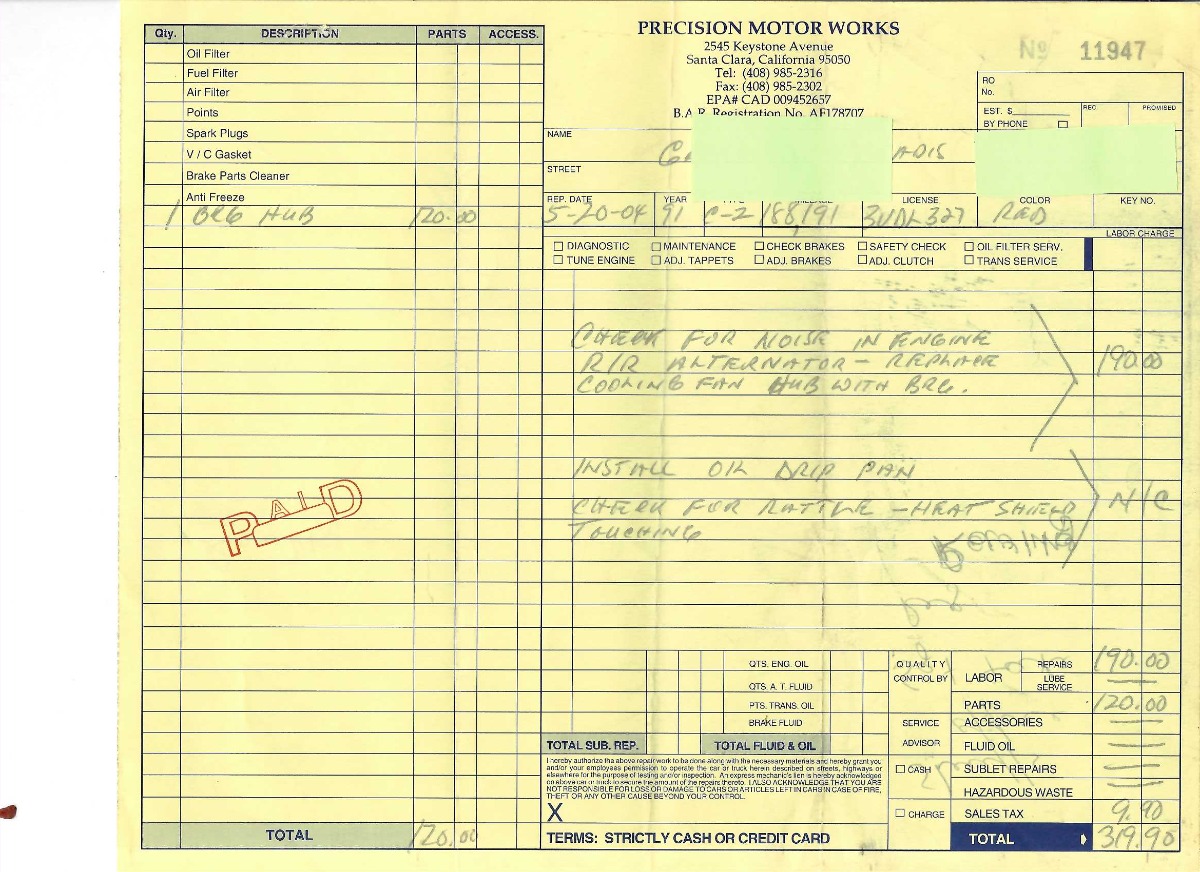 Qty. DESCRIPTION PARTS ACCESS.
Oil Filter
Fuel Filter
Air Filter
Points
Spark Plugs
V / C Gasket
Brake Parts Cleaner
Anti Freeze
1 BRG HUB 120.00
PAID
TOTAL 120.00
PRECISION MOTOR WORKS
2545 Keystone Avenue
Santa Clara, California 95050
Tel: (408) 985-2316
Fax: (408) 985-2302
EPA# CAD 009452657
B.A.R. Registration No. AF178707
Nº 11947
RO No.
EST. $ REC. PROMISED
BY PHONE
NAME
ADIS
STREET
REP. DATE YEAR MILEAGE LICENSE COLOR KEY NO.
5-20-04 91 C-2 188,191 3UDL327 RED
LABOR CHARGE
DIAGNOSTIC MAINTENANCE CHECK BRAKES SAFETY CHECK OIL FILTER SERV.
TUNE ENGINE ADJ. TAPPETS ADJ. BRAKES ADJ. CLUTCH TRANS SERVICE
CHECK FOR NOISE IN ENGINE
R/R ALTERNATOR - REPLACE 190.00
COOLING FAN HUB WITH BRG.
INSTALL OIL DRIP PAN
CHECK FOR RATTLE - HEAT SHIELD N/C
TOUCHING
QTS. ENG. OIL
QTS. A. T. FLUID
PTS. TRANS. OIL
BRAKE FLUID
TOTAL SUB. REP. TOTAL FLUID & OIL
QUALITY CONTROL BY
SERVICE ADVISOR
CASH
CHARGE
LABOR REPAIRS 190.00
LUBE SERVICE —
PARTS 120.00
ACCESSORIES —
FLUID OIL —
SUBLET REPAIRS —
HAZARDOUS WASTE —
SALES TAX 9.90
TOTAL 319.90
I hereby authorize the above repair work to be done along with the necessary materials and hereby grant you
and/or your employees permission to operate the car or truck herein described on streets, highways or
elsewhere for the purpose of testing and/or inspection. An express mechanic's lien is hereby acknowledged
on above car or truck to secure the amount of the repairs thereto. I ALSO ACKNOWLEDGE THAT YOU ARE
NOT RESPONSIBLE FOR LOSS OR DAMAGE TO CARS OR ARTICLES LEFT IN CARS IN CASE OF FIRE,
THEFT OR ANY OTHER CAUSE BEYOND YOUR CONTROL.
X
TERMS: STRICTLY CASH OR CREDIT CARD